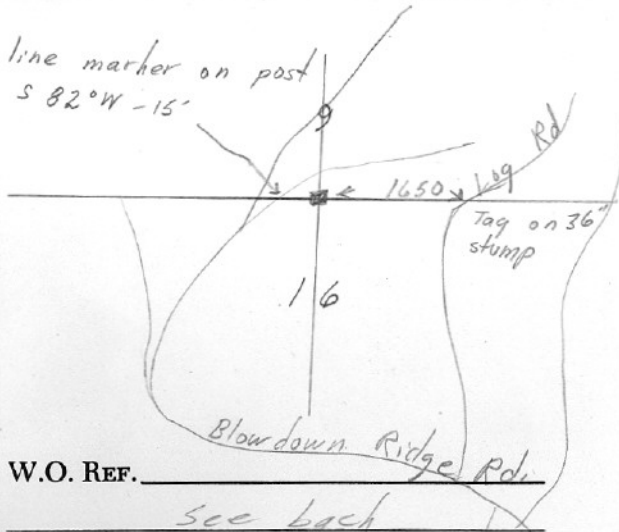 line marker on post
S 82°W - 15'
9
1650
Log Rd
Tag on 36"
stump
16
Blowdown Ridge Rd.
W.O. REF.
see back